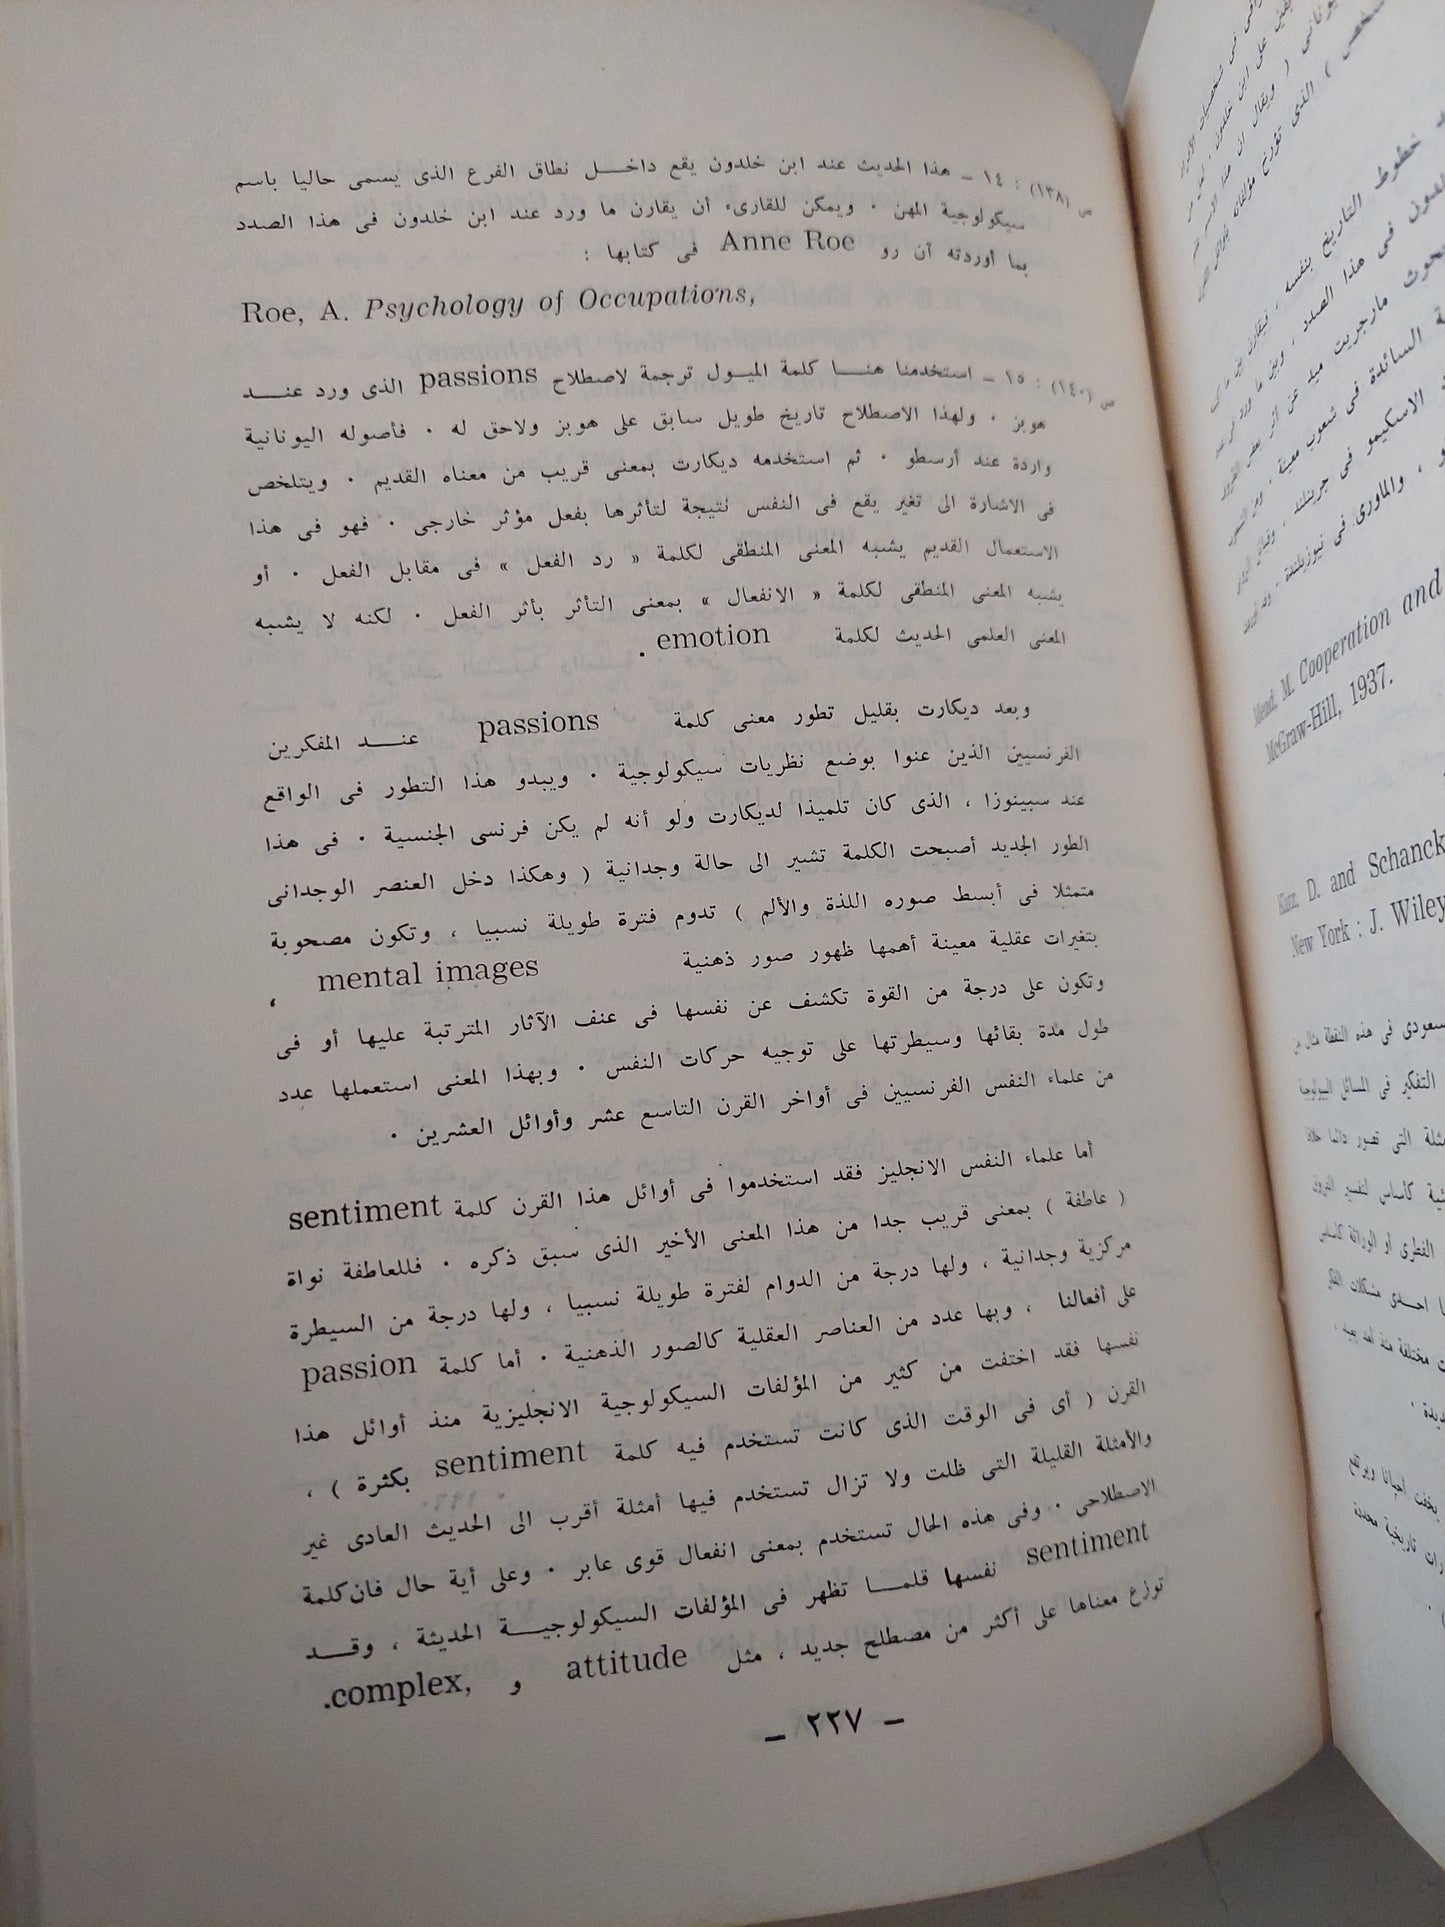 ص (١٣٨) : ١٤ ــ هذا الحديث عند ابن خلدون يقع داخــل نطاق الفرع الذى يسمى حاليا باسم
سيكولوجية المهن . ويمكن للقارىء أن يقارن ما ورد عند ابن خلدون فى هذا الصدد
بما أوردته آن رو Anne Roe فى كتابها :
Roe, A. Psychology of Occupations,
ص (١٤٠) : ١٥ ــ استخدمنا هنــا كلمة الميــول ترجمة لاصطلاح passions الذى ورد عنــد
هوبز . ولهذا الاصطلاح تاريخ طويل سابق على هوبز ولاحق له . فأصوله اليونانية
واردة عند أرسطو . ثم استخدمه ديكارت بمعنى قريب من معناه القديم . ويتلخص
فى الاشارة الى تغير يقع فى النفس نتيجة لتأثرها بفعل مؤثر خارجى . فهو فى هذا
الاستعمال القديم يشبه المعنى المنطقى لكلمة « رد الفعل » فى مقابل الفعل . أو
يشبه المعنى المنطقى لكلمة « الانفعال » بمعنى التأثر بأثر الفعل . لكنه لا يشبه
المعنى العلمى الحديث لكلمة emotion .
وبعد ديكارت بقليل تطور معنى كلمة passions عنــد المفكرين
الفرنسيين الذين عنوا بوضع نظريات سيكولوجية . ويبدو هذا التطور فى الواقع
عند سبينوزا ، الذى كان تلميذا لديكارت ولو أنه لم يكن فرنسى الجنسية . فى هذا
الطور الجديد أصبحت الكلمة تشير الى حالة وجدانية ( وهكذا دخل العنصر الوجدانى
متمثلا فى أبسط صوره اللذة والألم ) تدوم فترة طويلة نسبيا ، وتكون مصحوبة
بتغيرات عقلية معينة أهمها ظهور صور ذهنية mental images ،
وتكون على درجة من القوة تكشف عن نفسها فى عنف الآثار المترتبة عليها أو فى
طول مدة بقائها وسيطرتها على توجيه حركات النفس . وبهذا المعنى استعملها عدد
من علماء النفس الفرنسيين فى أواخر القرن التاسع عشر وأوائل العشرين .
أما علماء النفس الانجليز فقد استخدموا فى أوائل هذا القرن كلمة sentiment
( عاطفة ) بمعنى قريب جدا من هذا المعنى الأخير الذى سبق ذكره . فللعاطفة نواة
مركزية وجدانية ، ولها درجة من الدوام لفترة طويلة نسبيا ، ولها درجة من السيطرة
على أفعالنا ، وبها عدد من العناصر العقلية كالصور الذهنية . أما كلمة passion
نفسها فقد اختفت من كثير من المؤلفات السيكولوجية الانجليزية منذ أوائل هذا
القرن ( أى فى الوقت الذى كانت تستخدم فيه كلمة sentiment بكثرة ) ،
والأمثلة القليلة التى ظلت ولا تزال تستخدم فيها أمثلة أقرب الى الحديث العادى غير
الاصطلاحى . وفى هذه الحال تستخدم بمعنى انفعال قوى عابر . وعلى أية حال فان كلمة
sentiment نفسها قلمــا تظهر فى المؤلفات السيكولوجيــة الحديثة ، وقــد
توزع معناها على أكثر من مصطلح جديد ، مثل attitude و complex,.
ــ ٢٢٧ ــ
خطوط التاريخ بنفسه
فى هذا الصدد
بحوث مارجريت ميد عن
السائدة فى شعوب معينة
الاسكيمو فى جرينلند
، والماورى فى نيوزيلندة .
Mead, M. Cooperation and
McGraw-Hill, 1937.
Katz, D. and Schanck
New York : J. Wiley
فى هذه النقطة مثال من
التفكير فى المسائل البيولوجية
التى تصور دائما
كأساس
الفطرى أو الوراثة كأساس
احــدى مشكلات الفكر
مختلفة منذ
يخفت احيانا ويرتفع
تاريخية محددة